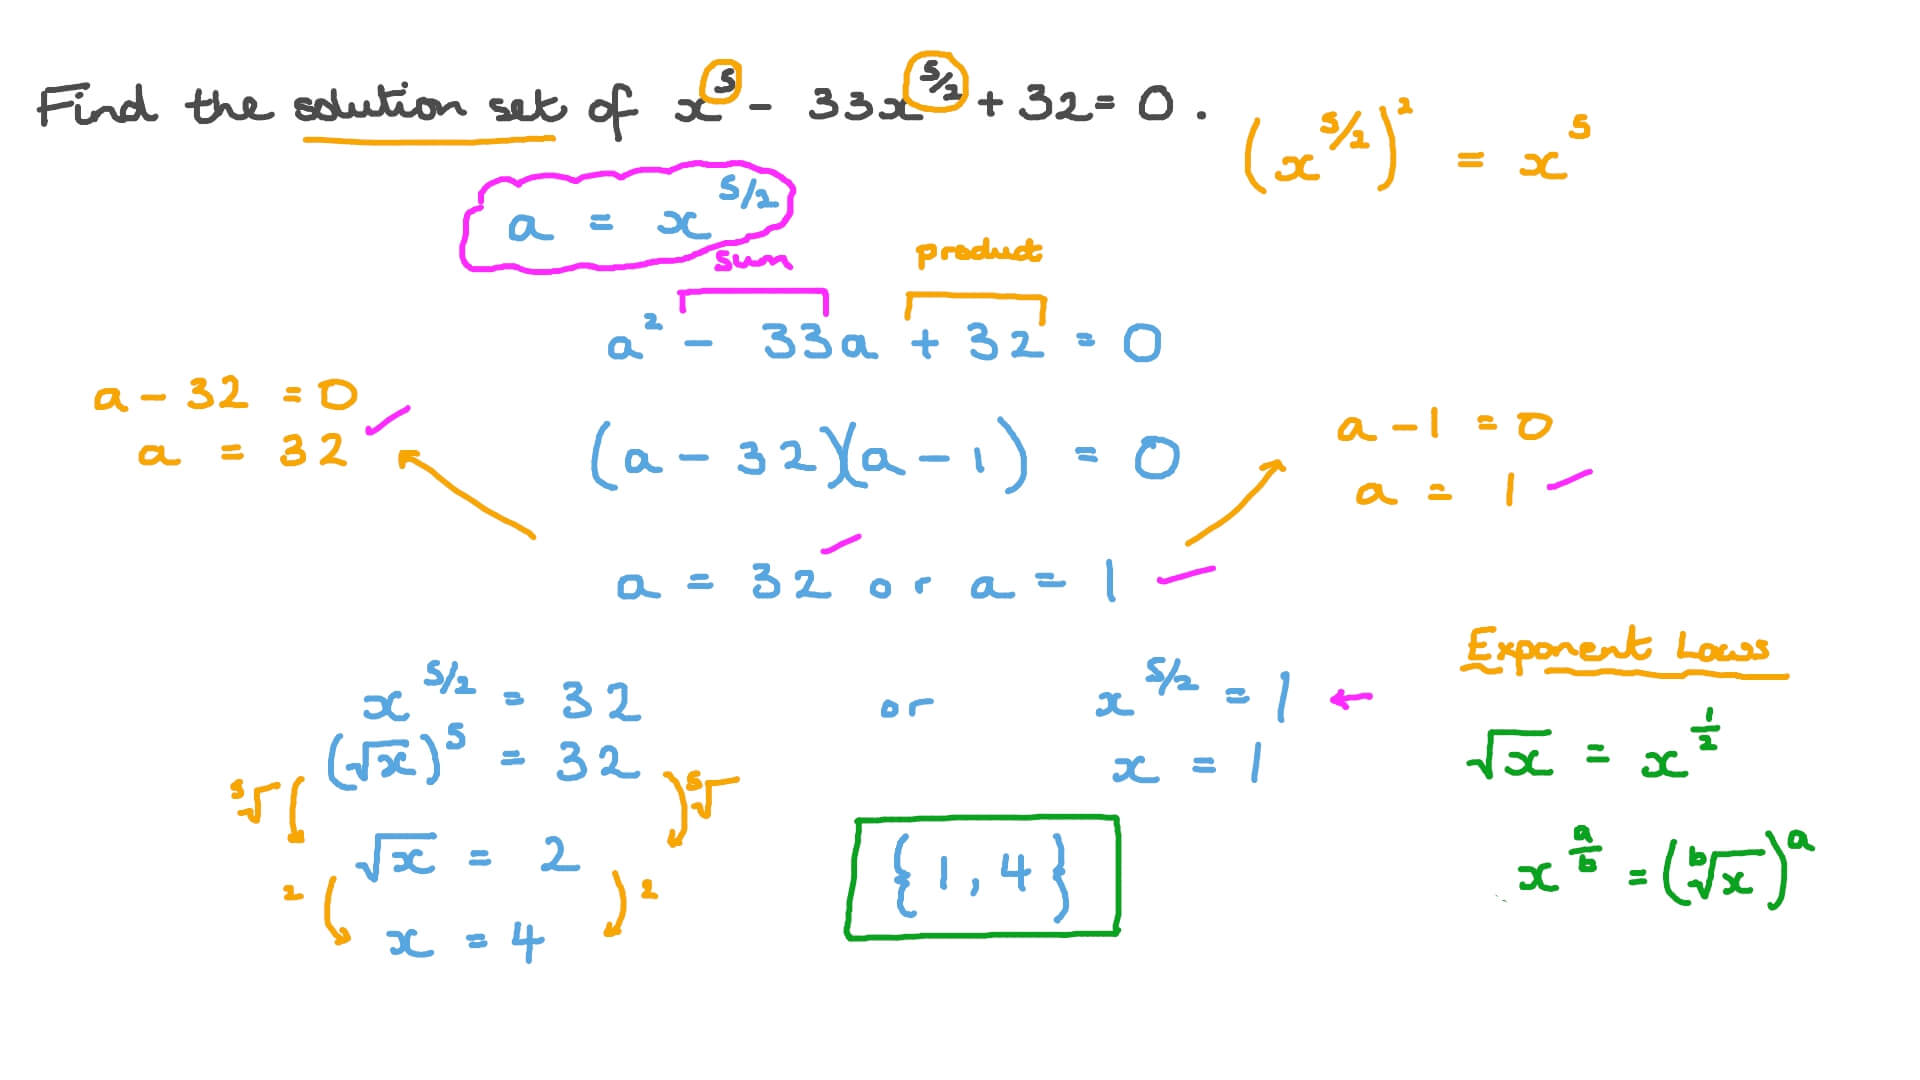 Find the solution set of x⁵ − 33x^(5/2) + 32 = 0 .
(x^(5/2))² = x⁵
a = x^(5/2)
sum
product
a² − 33a + 32 = 0
a − 32 = 0
a = 32
(a − 32)(a − 1) = 0
a − 1 = 0
a = 1
a = 32 or a = 1
Exponent Laws
x^(5/2) = 32 or x^(5/2) = 1
(√x)⁵ = 32
x = 1
√x = x^(1/2)
⁵√ ⁵√
√x = 2
{1, 4}
x^(a/b) = (ᵇ√x)ᵃ
2 2
x = 4